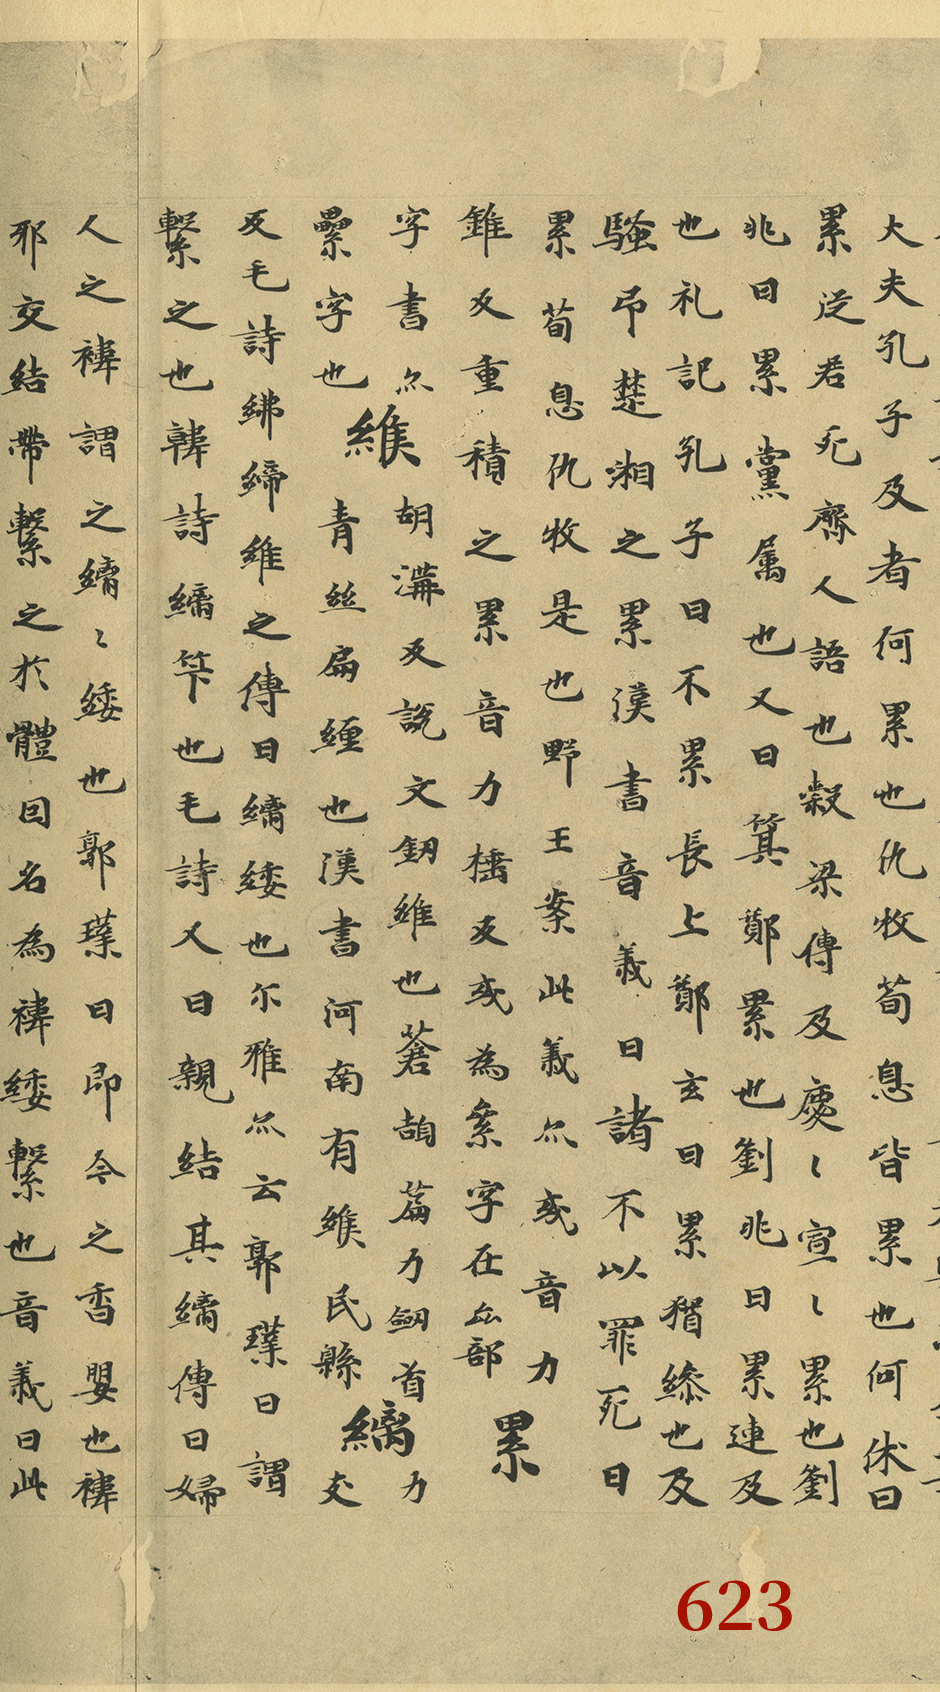 大夫孔子及者何累也仇牧荀息皆累也何休曰
累泛君死齊人語也穀梁傳及處〻宣〻累也劉
兆曰累黨属也又曰箕鄭累也劉兆曰累連及
也礼記孔子曰不累長上鄭玄曰累猶絫也及
騷吊楚湘之累漢書音義曰諸不以罪死曰
累荀息仇牧是也野王案此義亦或音力
錐反重積之累音力檑反或為絫字在厽部 累
字書亦胡溝反說文釼維也蒼頡篇刀劒首力
纍字也 緱 青絲扁纏也漢書河南有緱民縣 縭 力
反毛詩紼縭維之傳曰縭緌也尔雅亦云郭璞曰謂
繫之也韓詩縭筰也毛詩又曰親結其縭傳曰婦
人之褘謂之縭〻緌也郭璞曰即今之香嬰也褘
邪交結帶繫之於體因名為褘緌繫也音義曰此
623